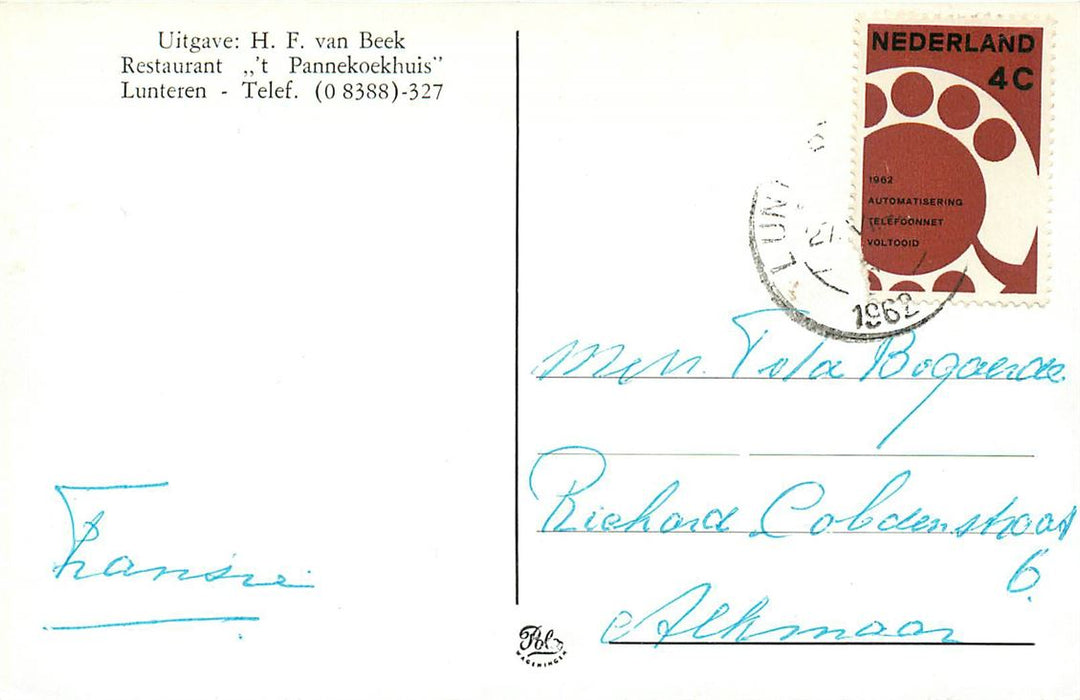 Uitgave: H. F. van Beek
Restaurant „'t Pannekoekhuis”
Lunteren - Telef. (0 8388)-327
NEDERLAND
4C
1962
AUTOMATISERING
TELEFOONNET
VOLTOOID
LUN
27
1962
Mej. Tola Bogaerde
Richard Cobdenstraat
6.
Alkmaar
Fransie
WAGENINGEN